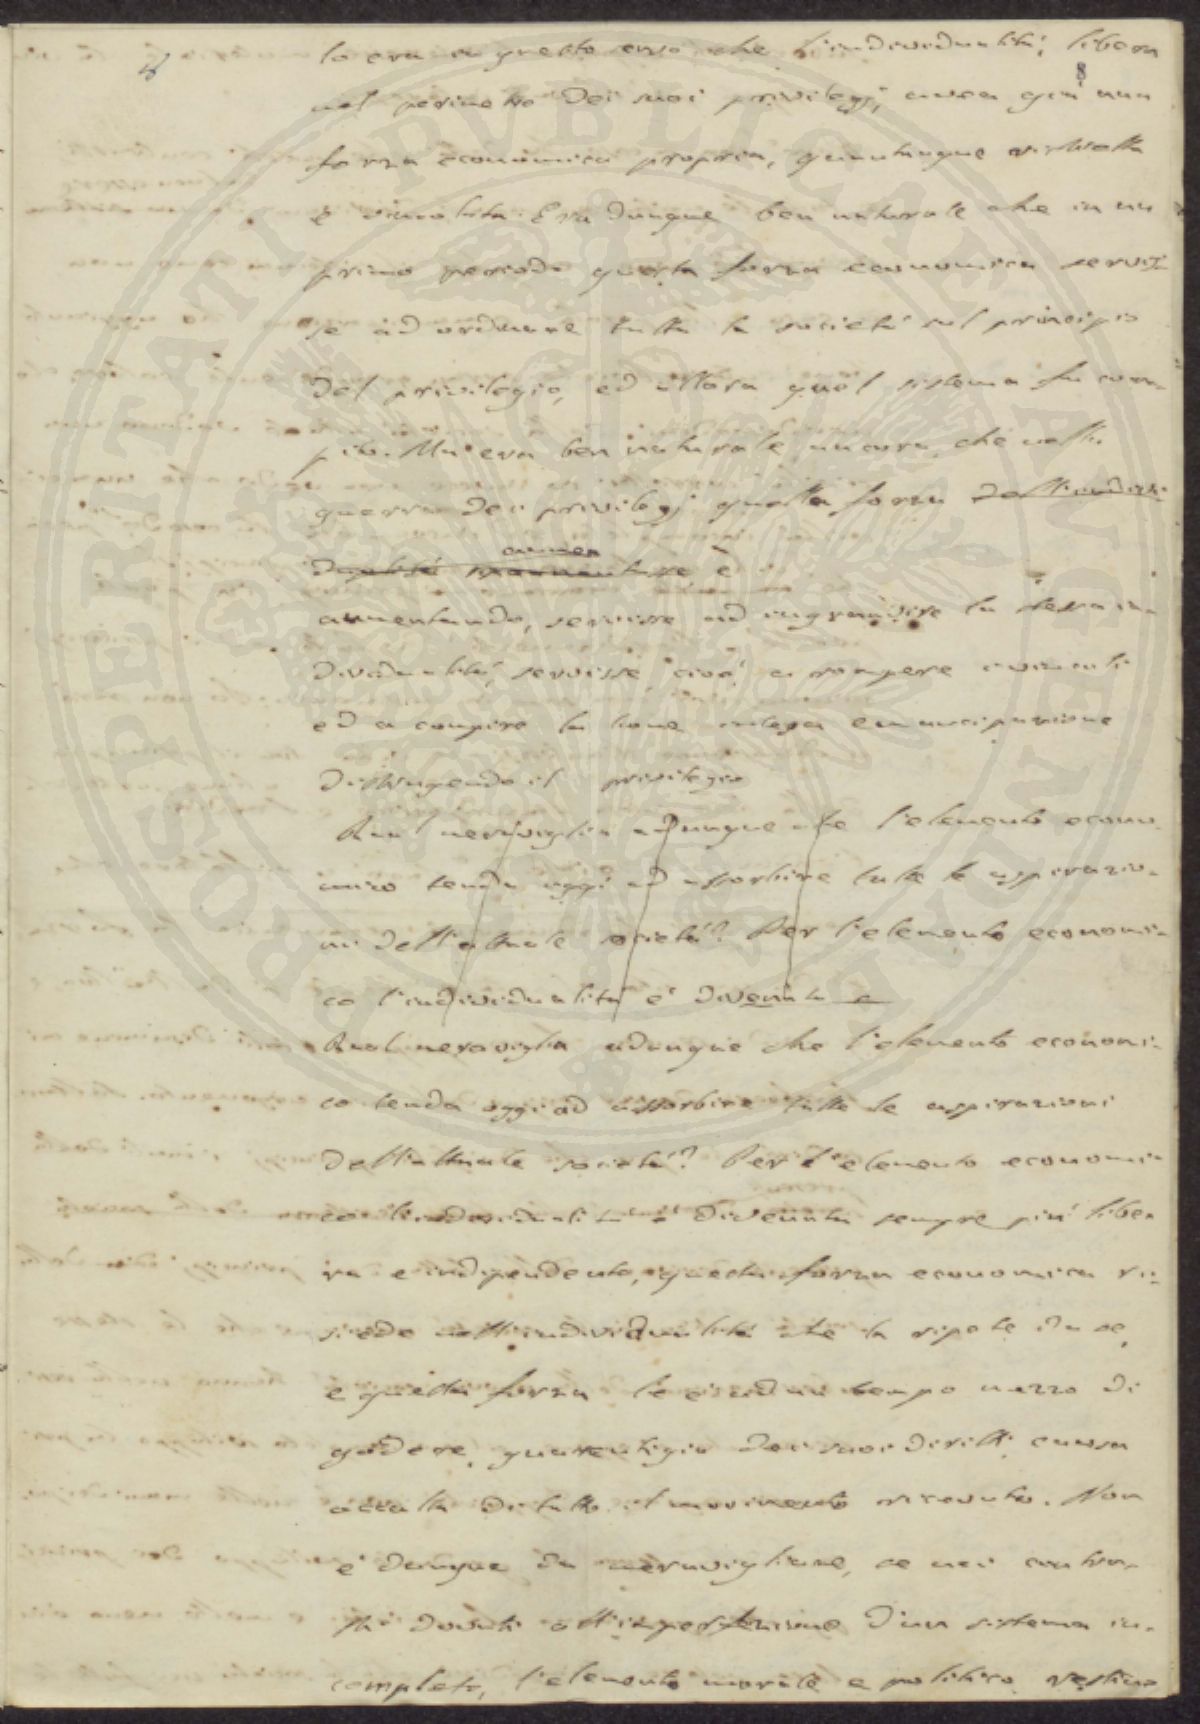 lo era in questo senso che l'individualità, libera
8
nel perimetro dei suoi privilegj, aveva già una
forza economica propria, quantunque ristretta
e vincolata. Era dunque ben naturale che in un
primo periodo questa forza economica servis-
se ad ordinare tutta la società sul principio
del privilegio, ed allora quel sistema fu com-
pito. Ma era ben naturale ancora, che nella
guerra dei privilegj quella forza dell'indivi-
dualità aumentasse e
aumentando, servisse ad ingrandire la stessa in-
dividualità, servisse cioè a rompere i vincoli
ed a compire la sua intega emancipazione
distruggendo il privilegio
Qual meraviglia adunque che l'elemento econo-
mico tenda oggi ad assorbire tutte le aspirazio-
ni dell'attuale società? Per l'elemento economi-
co l'individualità è divenuta e
Qual meraviglia adunque che l'elemento economi-
co tenda oggi ad assorbire tutte le aspirazioni
dell'attuale società? Per l'elemento economi-
co l'individualità è divenuta sempre più libe-
ra e indipendente, questa forza economica ri-
siede nell'individualità che la ripete da se,
e questa forza le è ad un tempo mezzo di
godere, guarentigia dei suoi diritti, causa
occulta di tutto il movimento ricevuto. Non
è dunque da meravigliare, se nei contra-
sti dovuti all'imperfezione d'un sistema in-
completo, l'elemento morale e politico
PROSPERITATI PUBLICAE AUGENDAE